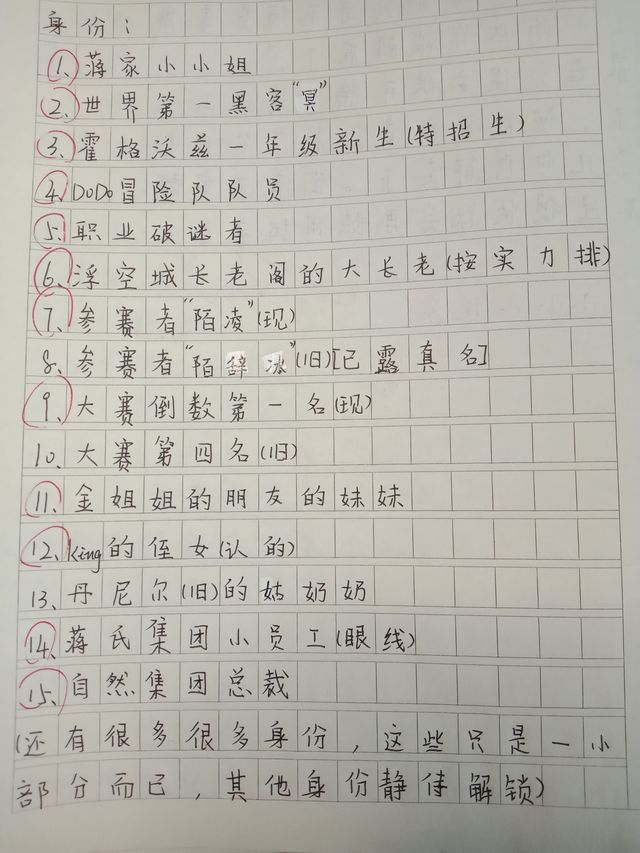 身份：
1、蒋家小小姐
2、世界第一黑客“冥”
3、霍格沃兹一年级新生(特招生)
4、DoDo冒险队队员
5、职业破谜者
6、浮空城长老阁的大长老(按实力排)
7、参赛者“陌凌”(现)
8、参赛者“陌辞冰”(旧)[已露真名]
9、大赛倒数第一名(现)
10、大赛第四名(旧)
11、金姐姐的朋友的妹妹
12、king的侄女(认的)
13、丹尼尔(旧)的姑奶奶
14、蒋氏集团小员工(眼线)
15、自然集团总裁
(还有很多很多身份，这些只是一小
部分而已，其他身份静待解锁)